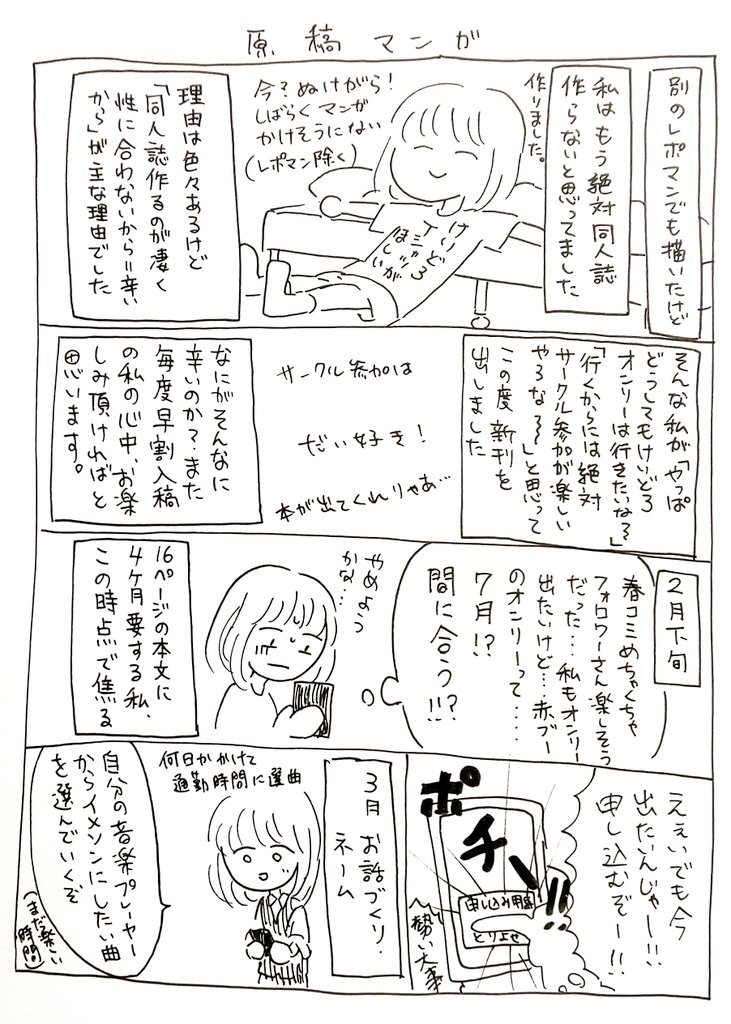 原稿マンガ
別のレポマンでも描いたけど
私はもう絶対同人誌
作らないと思ってました
作りました。
今？ぬけがら！
しばらくマンガ
かけそうにない
(レポマン除く)
けいどろ
Tシャツが
ほしい
理由は色々あるけど
「同人誌作るのが凄く
性に合わないから=辛い
から」が主な理由でした
そんな私が「やっぱ
どうしてもけいどろ
オンリーは行きたいな〜」
「行くからには絶対
サークル参加が楽しい
やろな〜〜」と思って
この度新刊を
出しました
サークル参加は
だい好き！
本が出てくれりゃあ…
なにがそんなに
辛いのか？また
毎度早割入稿
の私の心中、お楽
しみ頂ければと
思います。
2月下旬
春コミめちゃくちゃ
フォロワーさん楽しそう
だった…私もオンリー
出たいけど…赤ブー
のオンリーって・・・・
7月!?
間に合う!!?
やめよう
かな…
16ページの本文に
4ヶ月要する私、
この時点で焦る
ええいでも今
出たいんじゃー!!
申し込むぞー!!
ポチッ!!
申し込み用
とりよせ
勢い大事
3月 お話づくり・
ネーム
何日かかけて
通勤時間に選曲
自分の音楽プレーヤー
からイメソンにしたい曲
を選んでいくぞ
(まだ楽しい
時間)